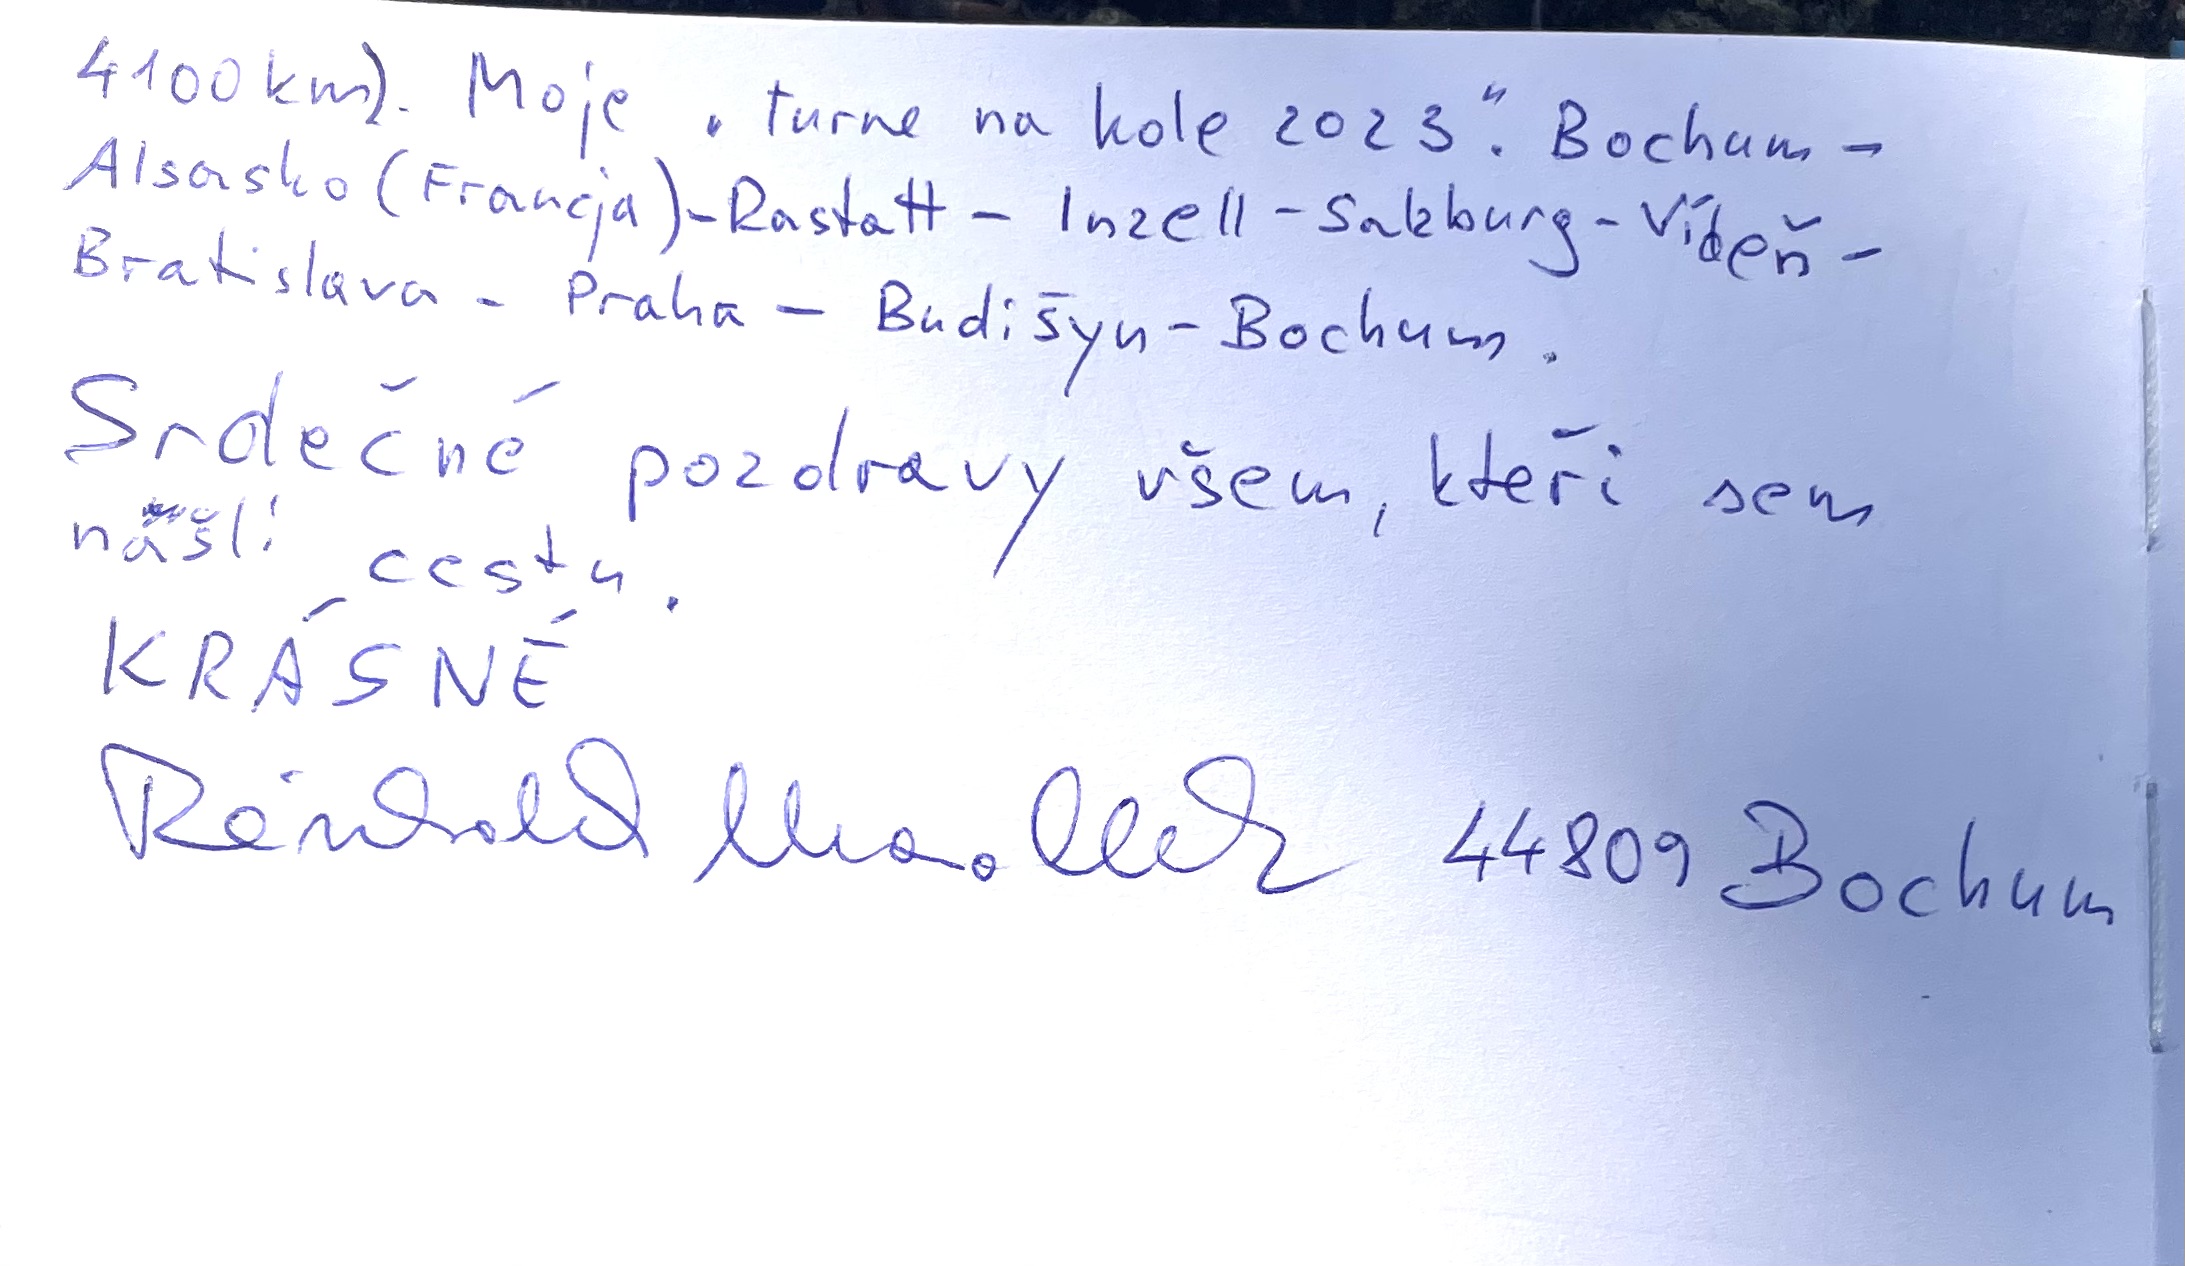 4100 km). Moje „turne na kole 2023“: Bochum -
Alsasko (Francja) - Rastatt - Inzell - Salzburg - Vídeň -
Bratislava - Praha - Budišyn - Bochum.
Srdečné pozdravy všem, kteří sem
našli cestu.
KRÁSNÉ
Reinhold 44809 Bochum